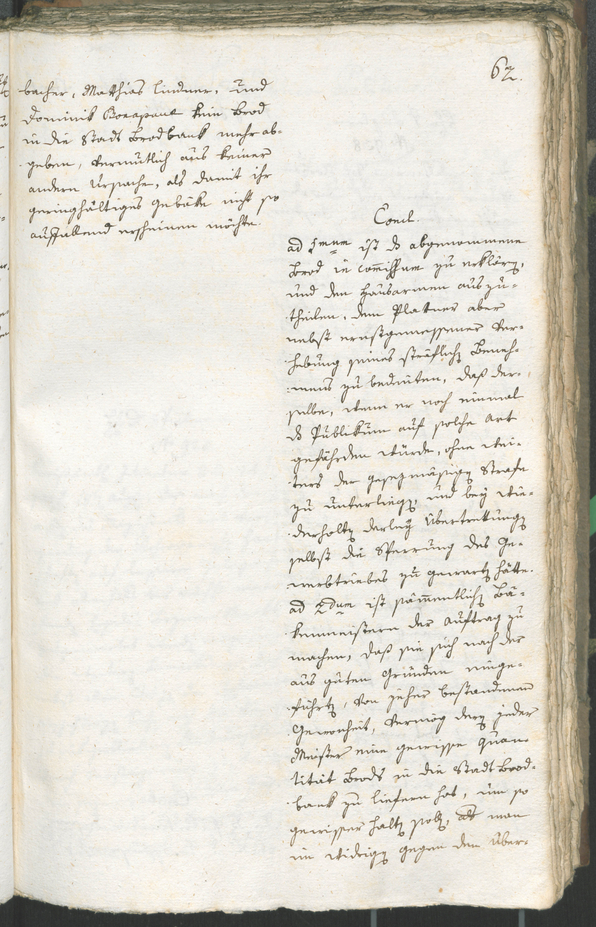 62.
bacher, Mathias Lindner, und
Dominik Bonapace kein Brod
in die Stadt Brodbank mehr ab-
geben, vermutlich aus keiner
andern Ursache, als damit ihr
geringhältiges Gebäke nicht so
auffallend erscheinen möchte.
Concl.
ad 1mum ist ds abgenommene
Brod in Commissum zu erklären,
und den Hausarmen auszu-
theilen, dem Platner aber
nebst ernstgemessener Ver-
hebung seines sträflichen Beneh-
mens zu bedeuten, daß der-
selbe, wenn er noch einmal
ds Publikum auf solche Art
gefährden würde, ohne wei-
ters der gesezmäsigen Strafe
zu unterliegen, und bey wie-
derholten derley Übertrettungen
selbst die Sperrung des Ge-
werbtriebes zu gewarten hätte.
ad 2dum ist sämmentlichen Bä-
kenmeistern der Auftrag zu
machen, daß sie sich nach der
aus guten Gründen einge-
führten, von jeher bestandenen
Gewonheit, vermög deren jeder
Meister eine gewisse Quan-
tität Brods in die Stadt Brod-
bank zu liefern hat, um so
gewisser halten sollen, als man
im widrigen gegen den Über-